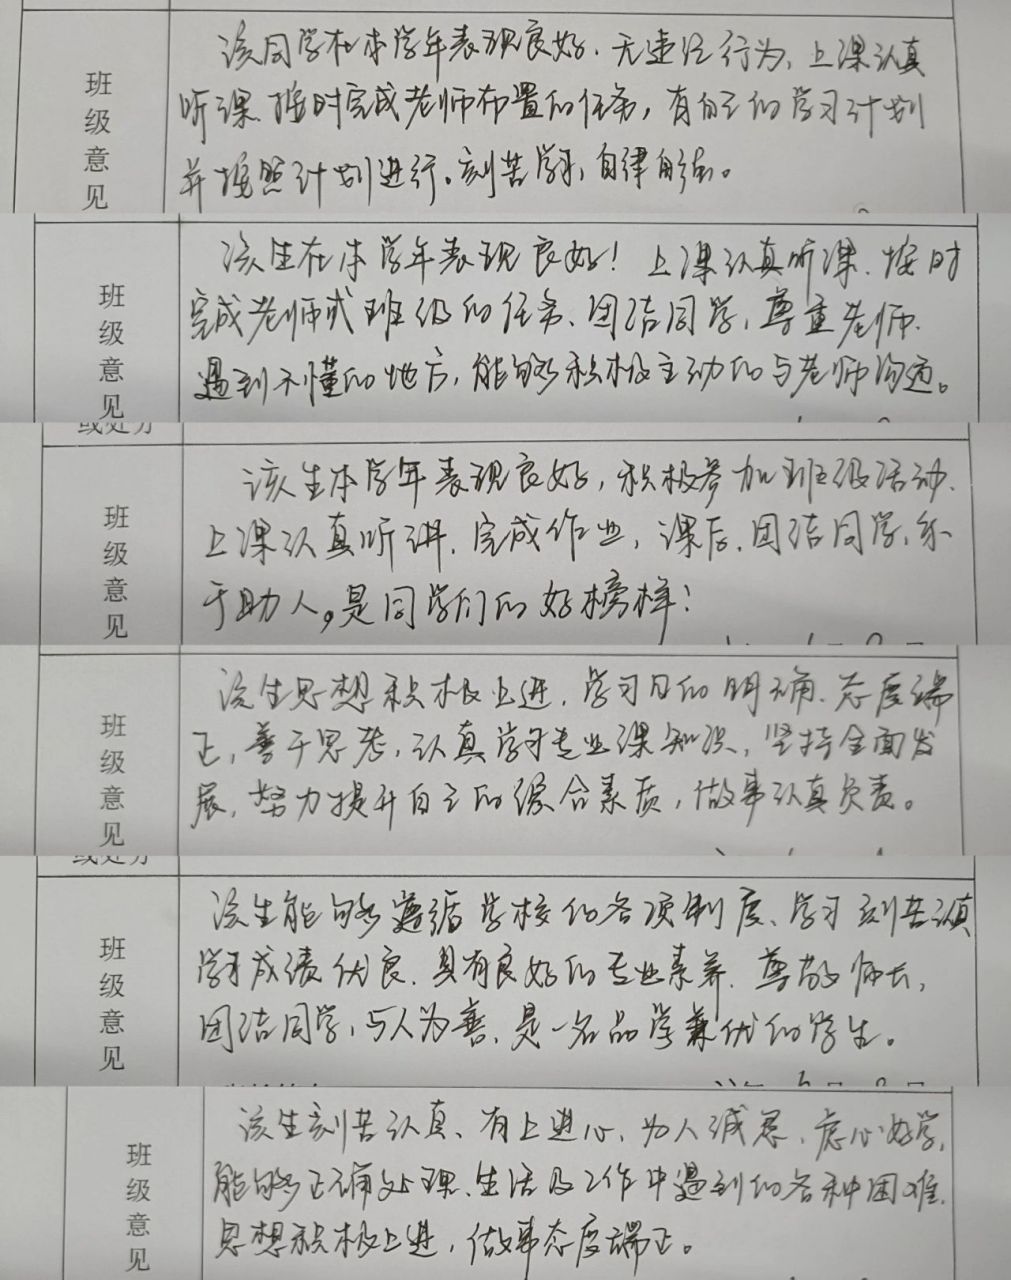 班级意见
该同学在本学年表现良好，无违纪行为，上课认真
听课、按时完成老师布置的任务，有自己的学习计划
并按照计划进行。刻苦学习，自律自强。
班级意见
该生在本学年表现良好！上课认真听课、按时
完成老师或班级的任务、团结同学，尊重老师.
遇到不懂的地方，能够积极主动的与老师沟通。
或处分
班级意见
该生本学年表现良好，积极参加班级活动.
上课认真听讲、完成作业，课后、团结同学、乐
于助人，是同学们的好榜样！
班级意见
该生思想积极上进，学习目的明确、态度端
正，善于思考，认真学习专业课知识，坚持全面发
展，努力提升自己的综合素质，做事认真负责。
或处分
班级意见
该生能够遵循学校的各项制度、学习刻苦认真
学习成绩优良，具有良好的专业素养，尊敬师长，
团结同学，与人为善，是一名品学兼优的学生。
班级意见
该生刻苦认真、有上进心、为人诚恳、虚心好学，
能够正确处理、生活及工作中遇到的各种困难.
思想积极上进，做事态度端正。